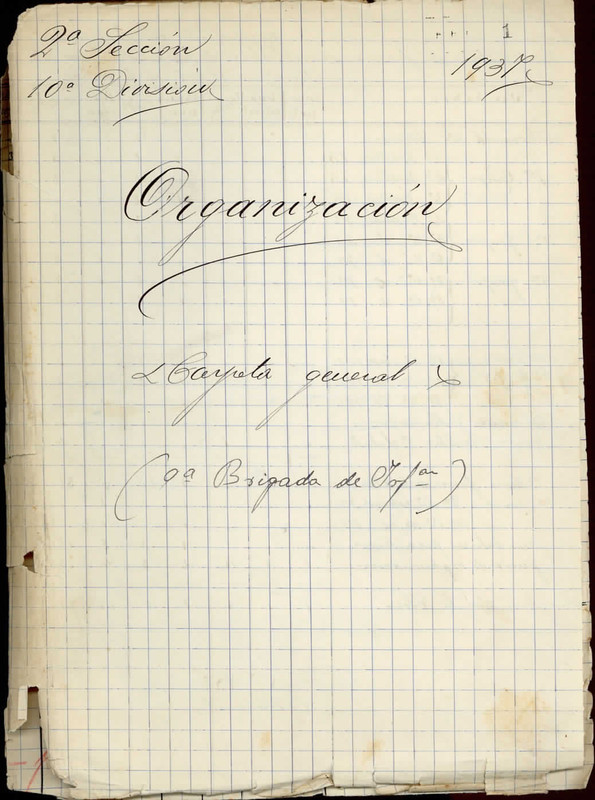 1
2ª Sección
1937
10ª División
Organización
Carpeta general
(9ª Brigada de Infan)